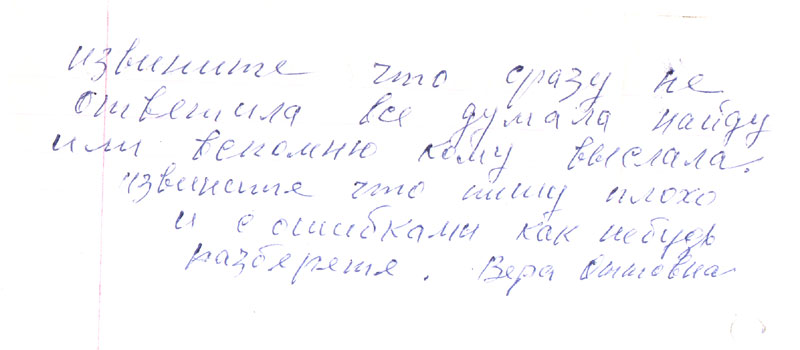 извините что сразу не
ответила все думала найду
или вспомню кому выслала.
извините что пишу плохо
и с ошибками как небудь
разберете. Вера